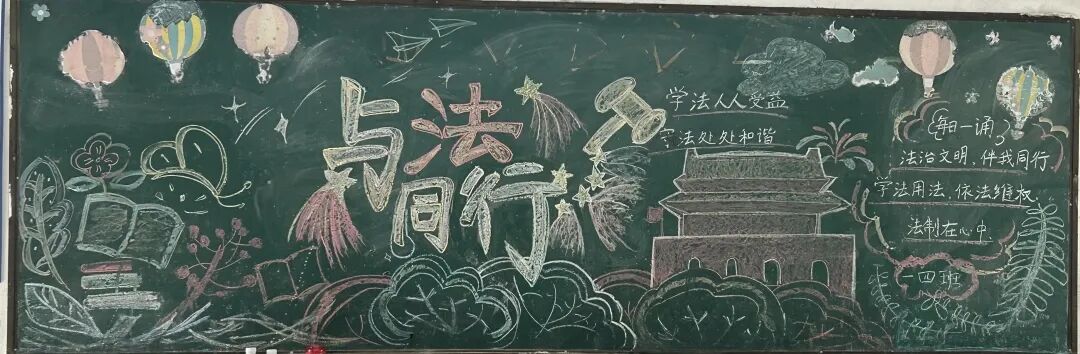 与法
同行
学法人人受益
守法处处和谐
每日一诵
法治文明、伴我同行
学法用法、依法维权
法制在心中
一四班